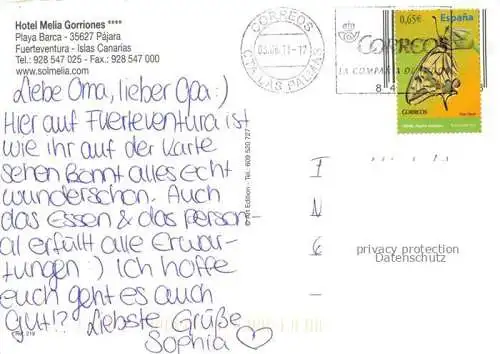 Hotel Melia Gorriones ****
Playa Barca - 35627 Pájara
Fuerteventura - Islas Canarias
Tel.: 928 547 025 - Fax: 928 547 000
www.solmelia.com
Liebe Oma, lieber Opa :)
Hier auf Fuerteventura ist
wie ihr auf der Karte
sehen könnt alles echt
wunderschön. Auch
das Essen & das Person-
al erfüllt alle Erwar-
tungen :) Ich hoffe
euch geht es auch
gut!? Liebste Grüße
Sophia
© Art Edition - Tel.: 609 520 727
CORREOS
LAS PALMAS
CORREOS
LA COMPAÑIA
0,65€
España
CORREOS
I
N
privacy protection
Datenschutz